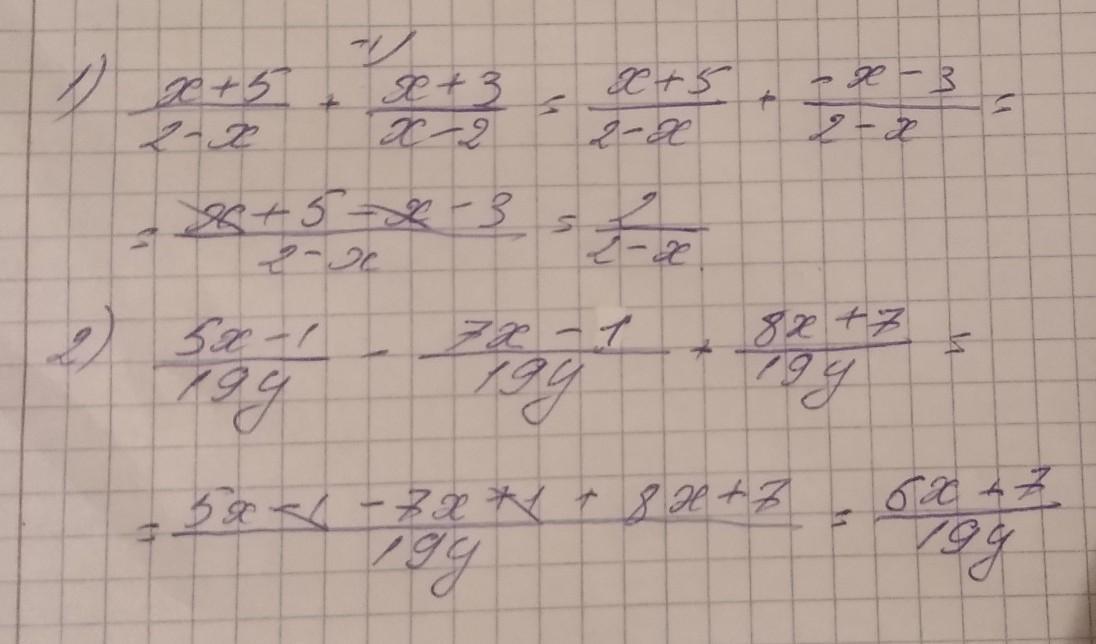 1) (x+5)/(2-x) + (x+3)/(x-2) -1) = (x+5)/(2-x) + (-x-3)/(2-x) =
= (x+5-x-3)/(2-x) = 2/(2-x)
2) (5x-1)/(19y) - (7x-1)/(19y) + (8x+7)/(19y) =
= (5x-1-7x+1+8x+7)/(19y) = (6x+7)/(19y)